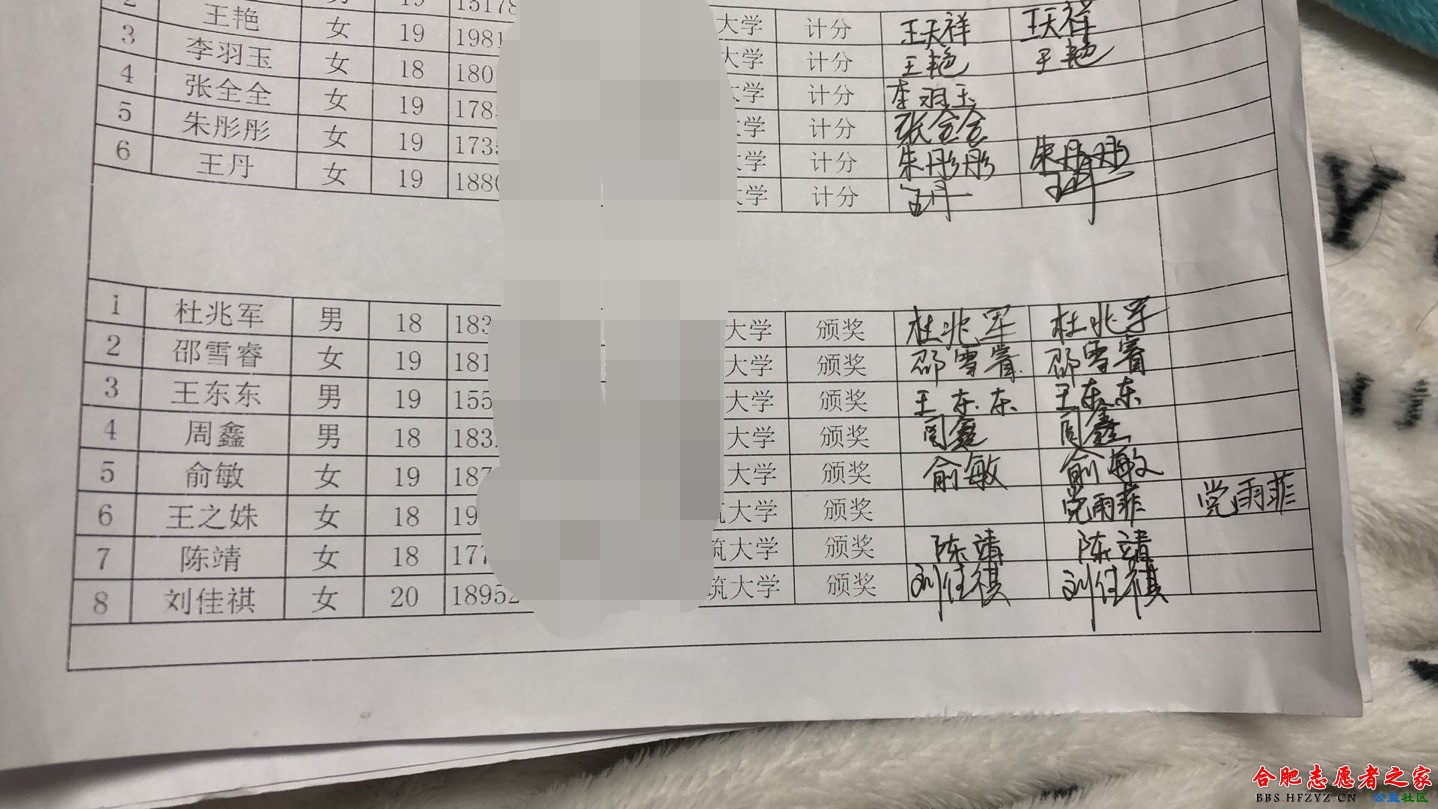 2 男 19 15178 大学 计分 王天祥 王天祥
3 王艳 女 19 1981 大学 计分 王艳 王艳
4 李羽玉 女 18 180 大学 计分 李羽玉
5 张全全 女 19 178 大学 计分 张全全
6 朱彤彤 女 19 1735 大学 计分 朱彤彤 朱彤彤
王丹 女 19 1880 大学 计分 王丹 王丹
1 杜兆军 男 18 183 大学 颁奖 杜兆军 杜兆军
2 邵雪睿 女 19 181 大学 颁奖 邵雪睿 邵雪睿
3 王东东 男 19 155 大学 颁奖 王东东 王东东
4 周鑫 男 18 183 大学 颁奖 周鑫 周鑫
5 俞敏 女 19 187 大学 颁奖 俞敏 俞敏
6 王之姝 女 18 19 筑大学 颁奖 党雨菲 党雨菲
7 陈靖 女 18 177 筑大学 颁奖 陈靖 陈靖
8 刘佳祺 女 20 18952 筑大学 颁奖 刘佳祺 刘佳祺
合肥志愿者之家
BBS.HFZYZ.CN 公益社区